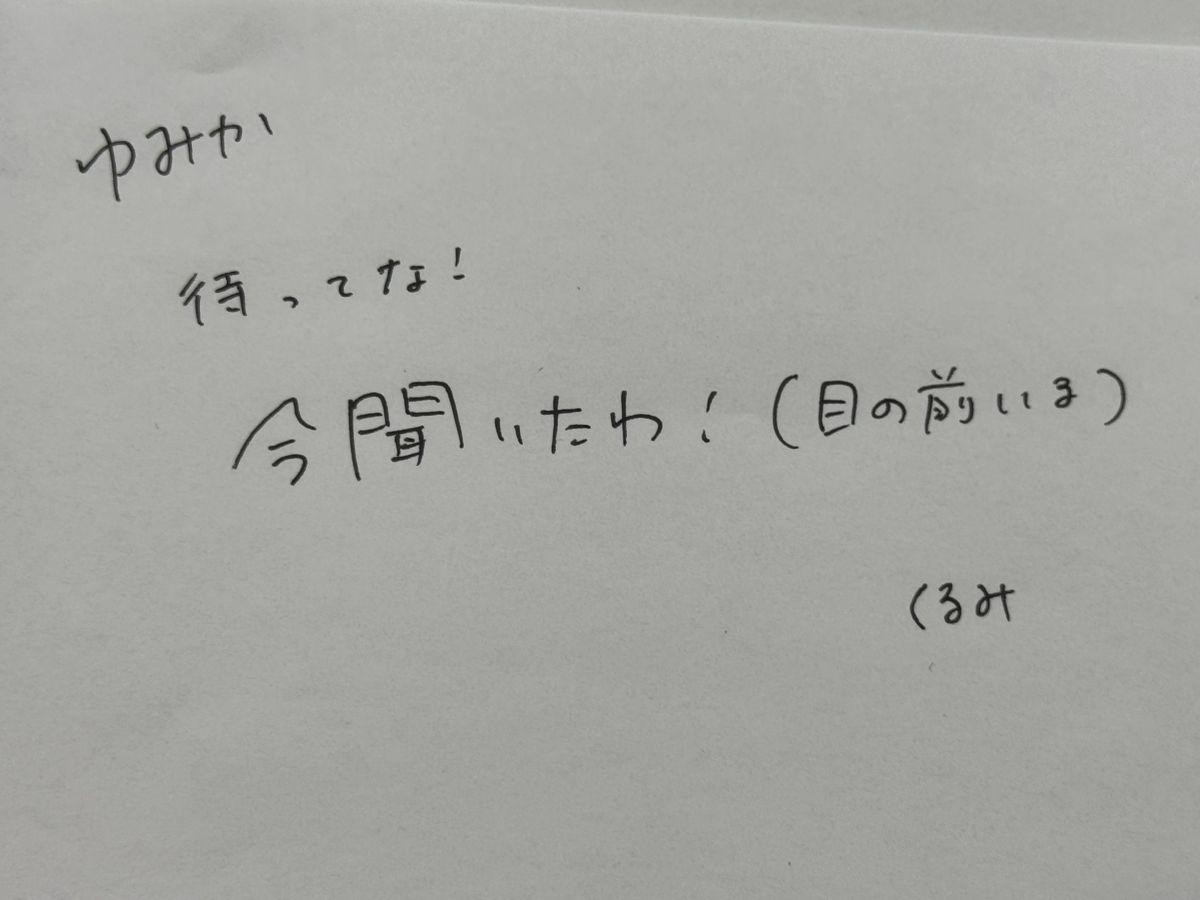 ゆみか
待ってな!
今聞いたわ!(目の前いる)
くるみ